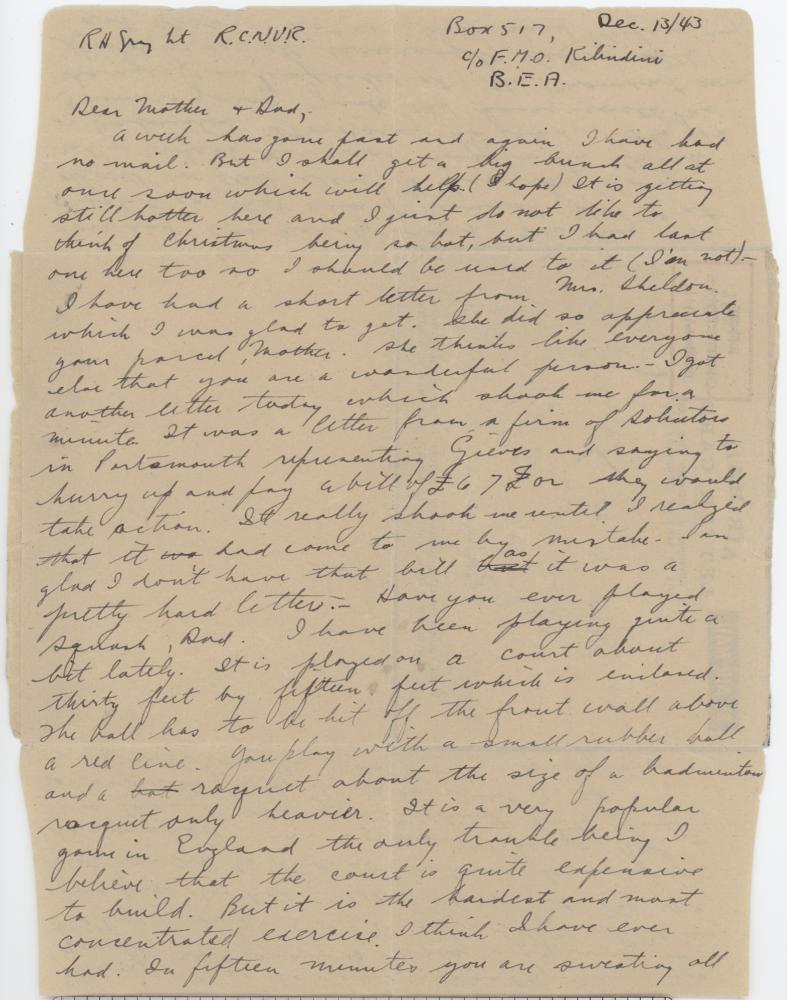 RH Gray Lt R.C.N.V.R.
Box 517, Dec. 13/43
c/o F.M.O. Kilindini
B.E.A.
Dear Mother + Dad,-
A week has gone past and again I have had
no mail. But I shall get a big bunch all at
once soon which will help. (I hope) It is getting
still hotter here and I just do not like to
think of Christmas being so hot, but I had last
one here too so I should be used to it (I'm not).-
I have had a short letter from Mrs. Sheldon.
which I was glad to get. She did so appreciate
your parcel, Mother. She thinks like everyone
else that you are a wonderful person.- I got
another letter today which shook me for a
minute. It was a letter from a firm of solicitors
in Portsmouth representing Gieves and saying to
hurry up and pay a bill of £67 or they would
take action. It really shook me until I realized
that it was had come to me by mistake - I am
glad I don't have that bill but as it was a
pretty hard letter.- Have you ever played
squash, Dad. I have been playing quite a
bit lately. It is played on a court about
thirty feet by fifteen feet which is enclosed.
The ball has to be hit off the front wall above
a red line. You play with a small rubber ball
and a bat racquet about the size of a badminton
racquet only heavier. It is a very popular
game in England the only trouble being I
believe that the court is quite expensive
to build. But it is the hardest and most
concentrated exercise I think I have ever
had. In fifteen minutes you are sweating all